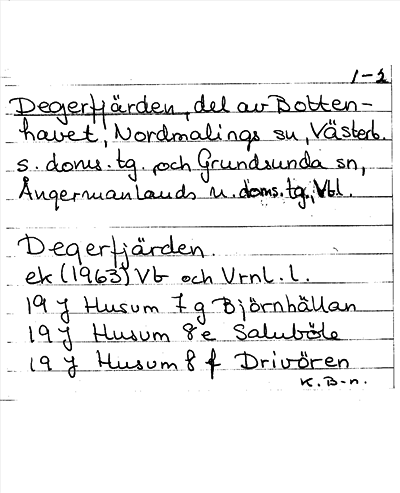 1-2
Degerfjärden, del av Botten-
havet, Nordmalings sn, Västerb.
s. doms. tg. och Grundsunda sn,
Ångermanlands n. doms. tg., Vbl.
Degerfjärden.
ek (1963) Vb och Vrnl. l.
19 J Husum 7 g Björnhällan
19 J Husum 8 e Saluböle
19 J Husum 8 f Drivören
K. B-n.